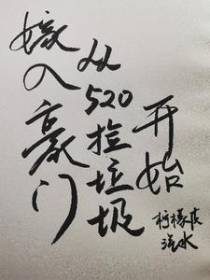 嫁入豪门
从520捡垃圾
开始
柠檬
汽水